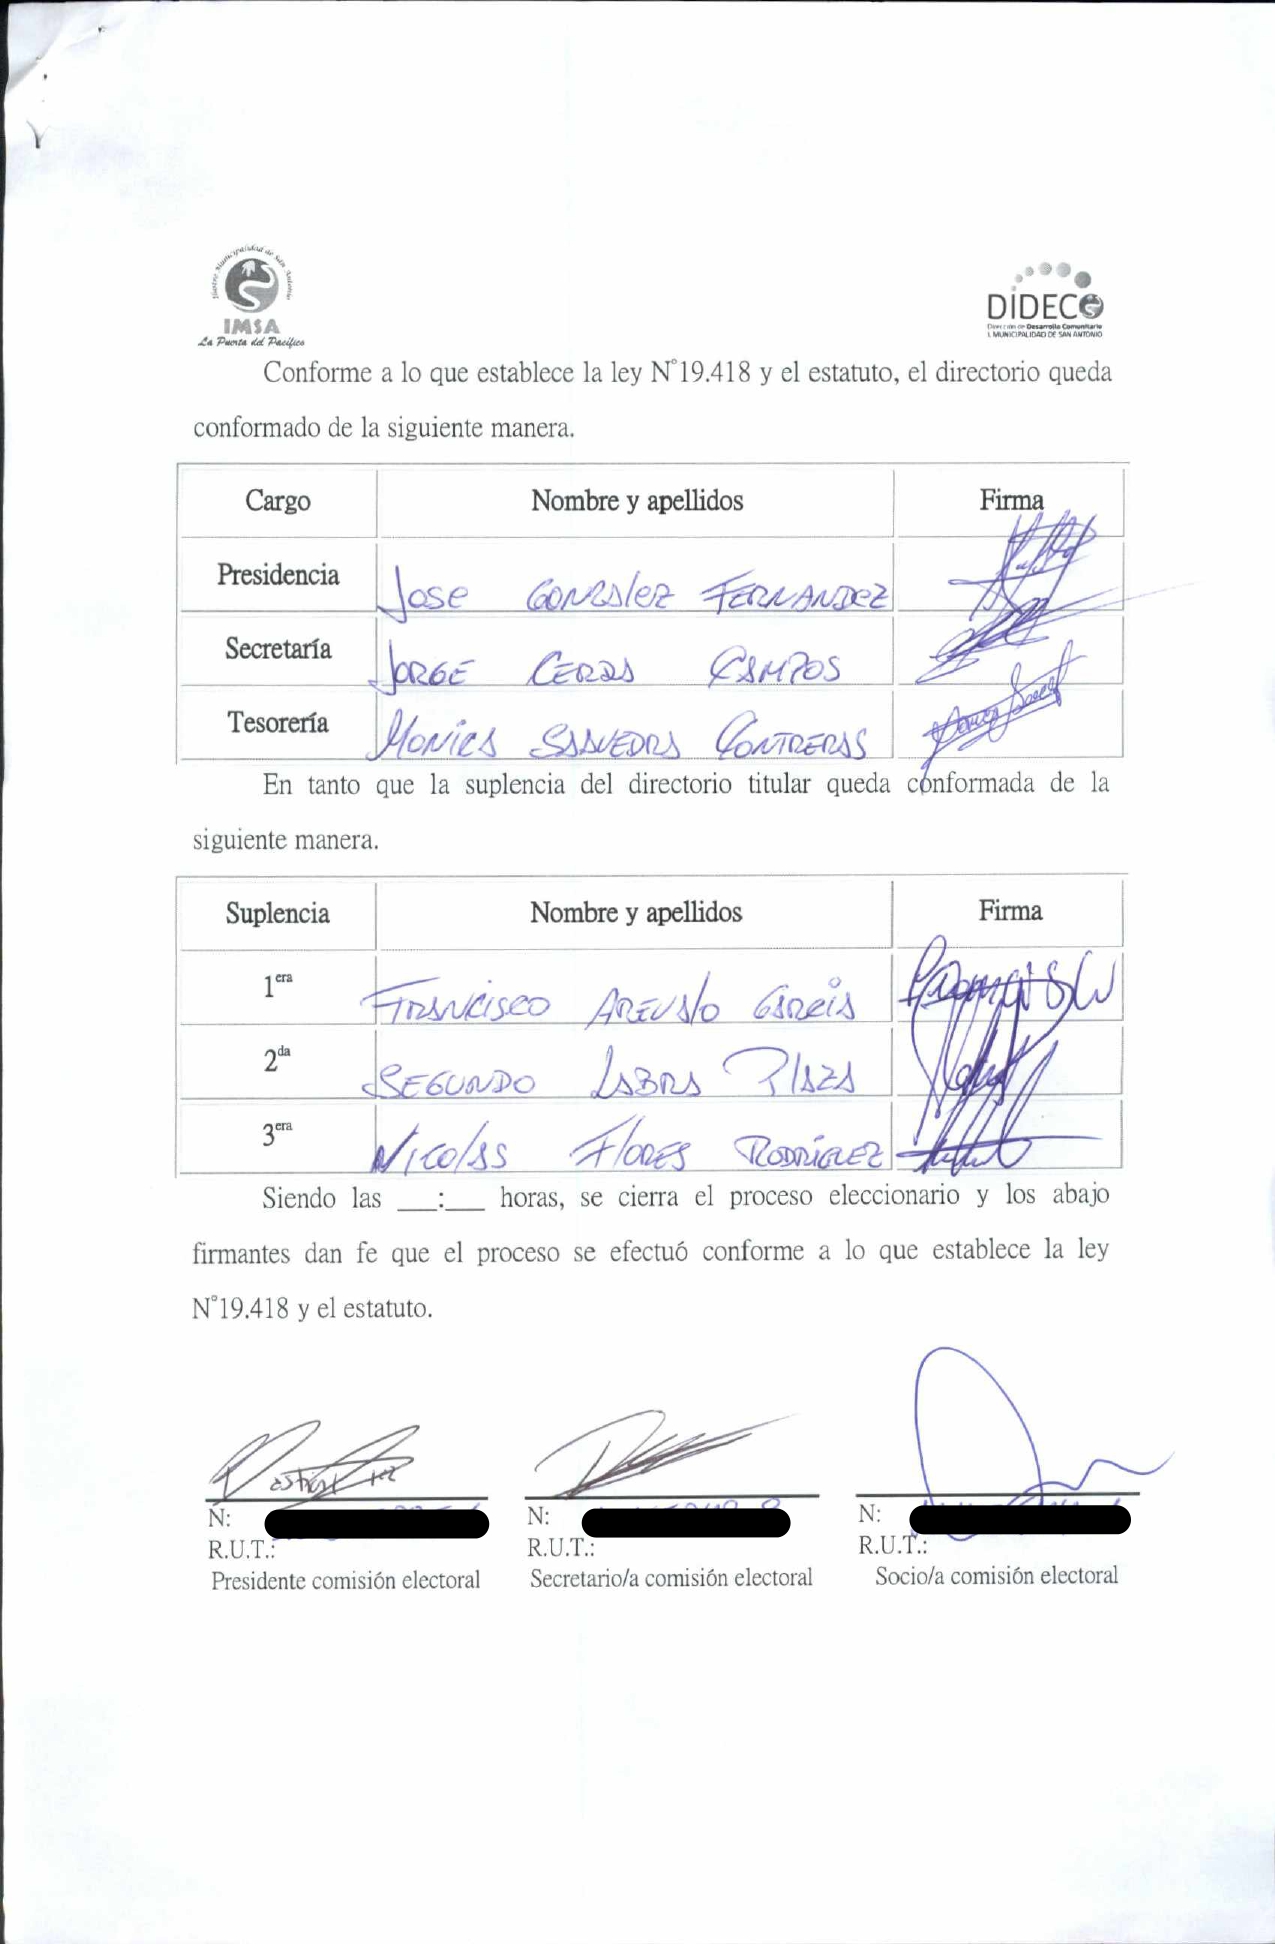 Ilustre Municipalidad de San Antonio
IMSA
La Puerta del Pacífico
DIDECO
Dirección de Desarrollo Comunitario
I. MUNICIPALIDAD DE SAN ANTONIO
Conforme a lo que establece la ley N°19.418 y el estatuto, el directorio queda
conformado de la siguiente manera.
Cargo Nombre y apellidos Firma
Presidencia JOSE GONZALEZ FERNANDEZ
Secretaría JORGE CERDA CAMPOS
Tesorería MONICA SAAVEDRA CONTRERAS
En tanto que la suplencia del directorio titular queda conformada de la
siguiente manera.
Suplencia Nombre y apellidos Firma
1era FRANCISCO AREVALO GARCÍA
2da SEGUNDO LABRA PLAZA
3era NICOLAS FLORES RODRÍGUEZ
Siendo las ___:___ horas, se cierra el proceso eleccionario y los abajo
firmantes dan fe que el proceso se efectuó conforme a lo que establece la ley
N°19.418 y el estatuto.
N: N: N:
R.U.T.: R.U.T.: R.U.T.:
Presidente comisión electoral Secretario/a comisión electoral Socio/a comisión electoral